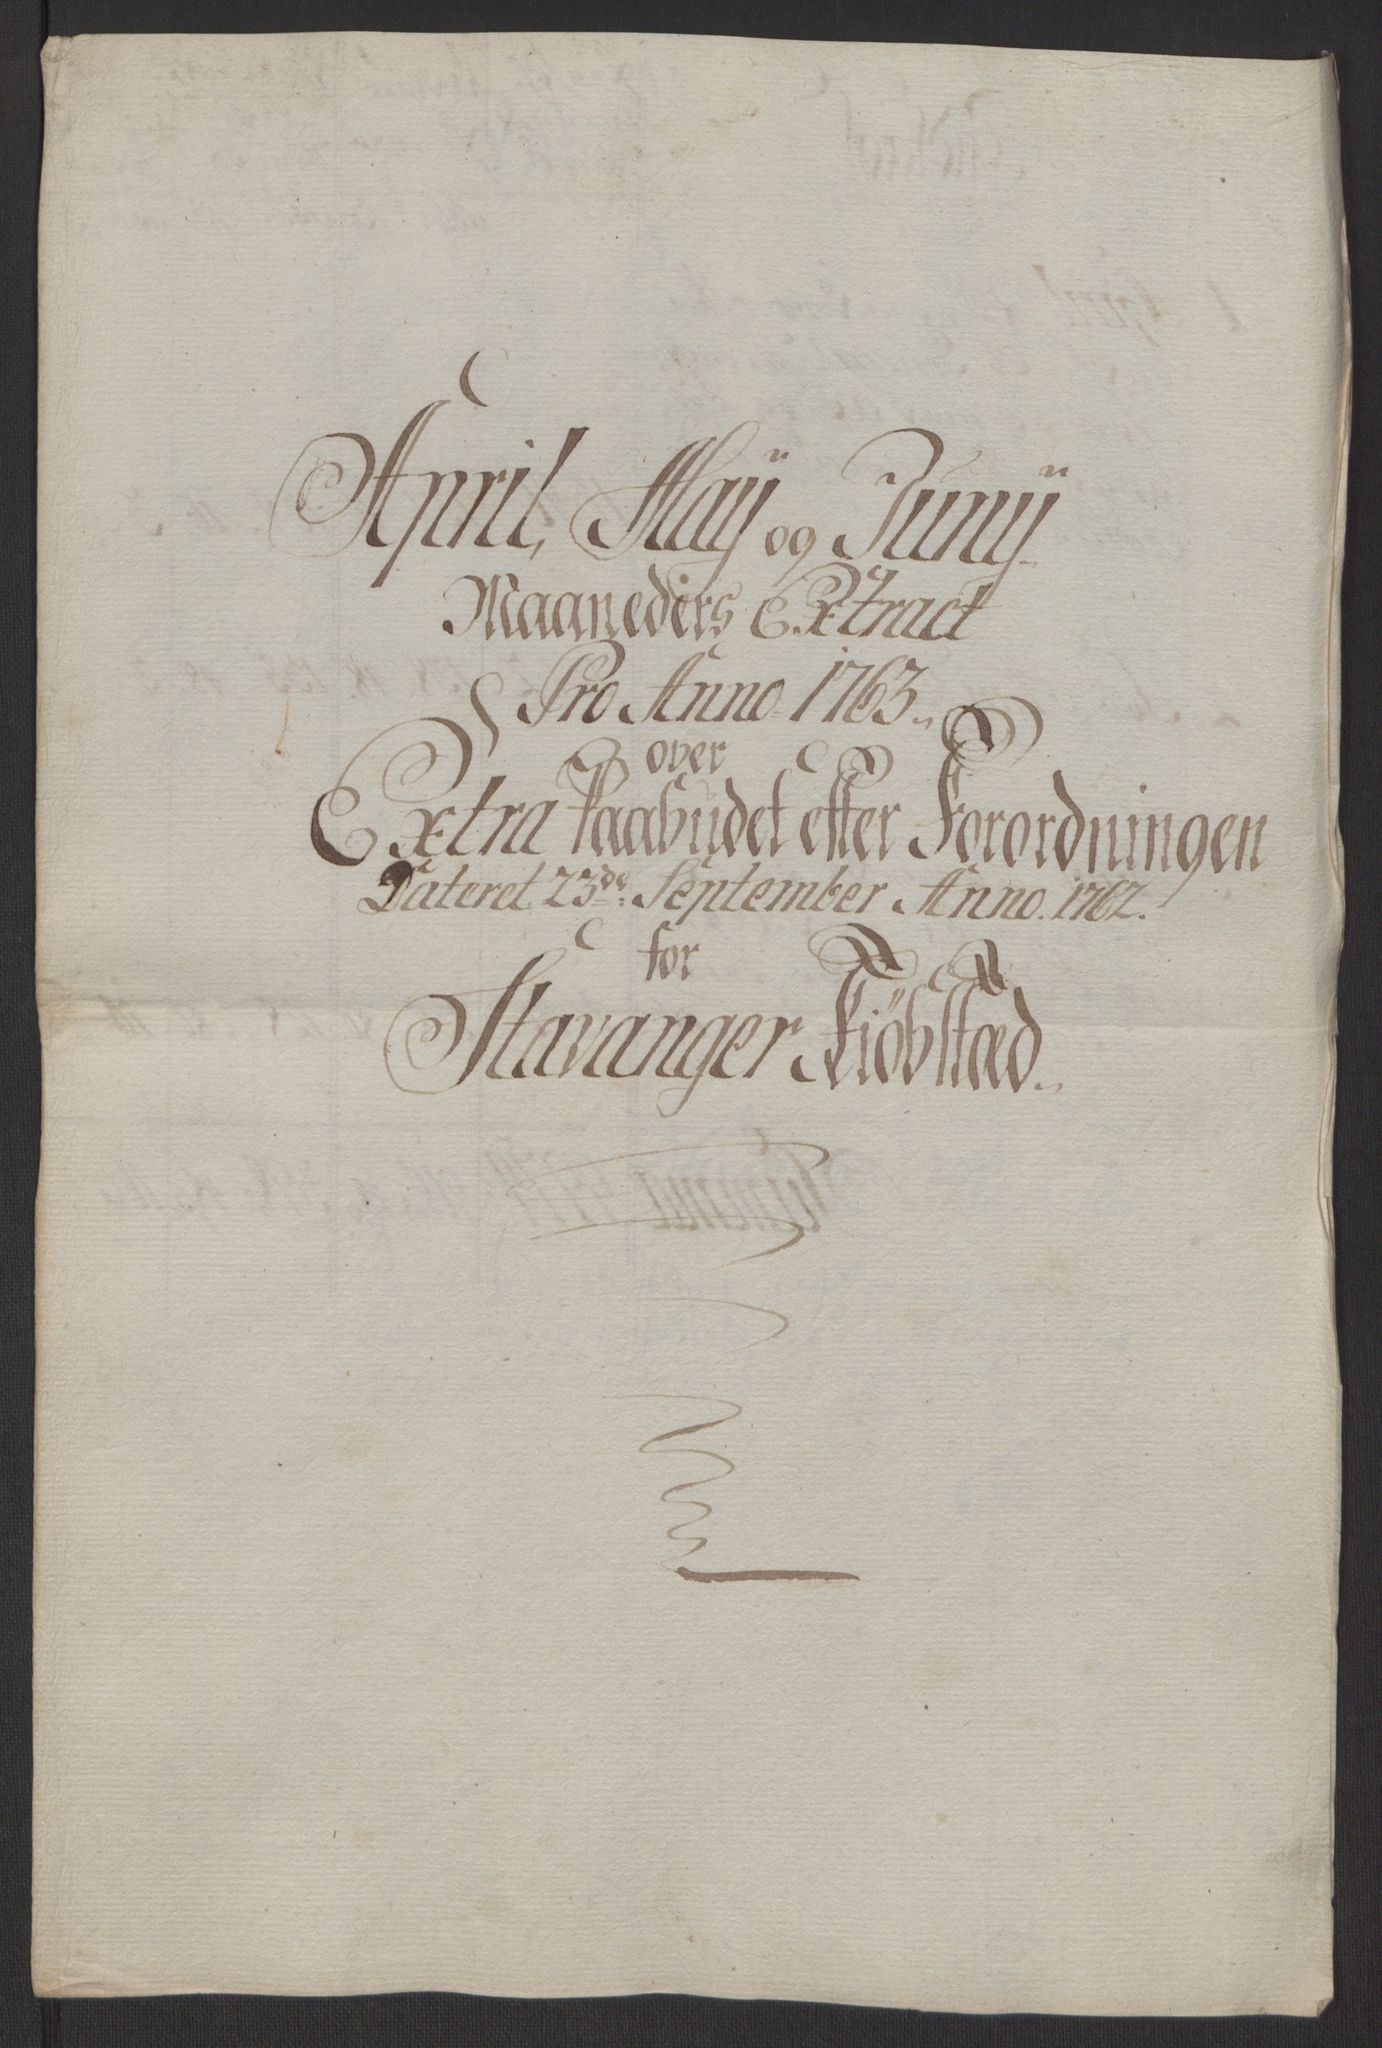 April, Maÿ og Junÿ
Maaneders Extract
Pro Anno 1763.
over
Extra Paabudet efter Forordningen
Dateret 23de September Anno 1762.
for
Stavanger Kiöbstæd